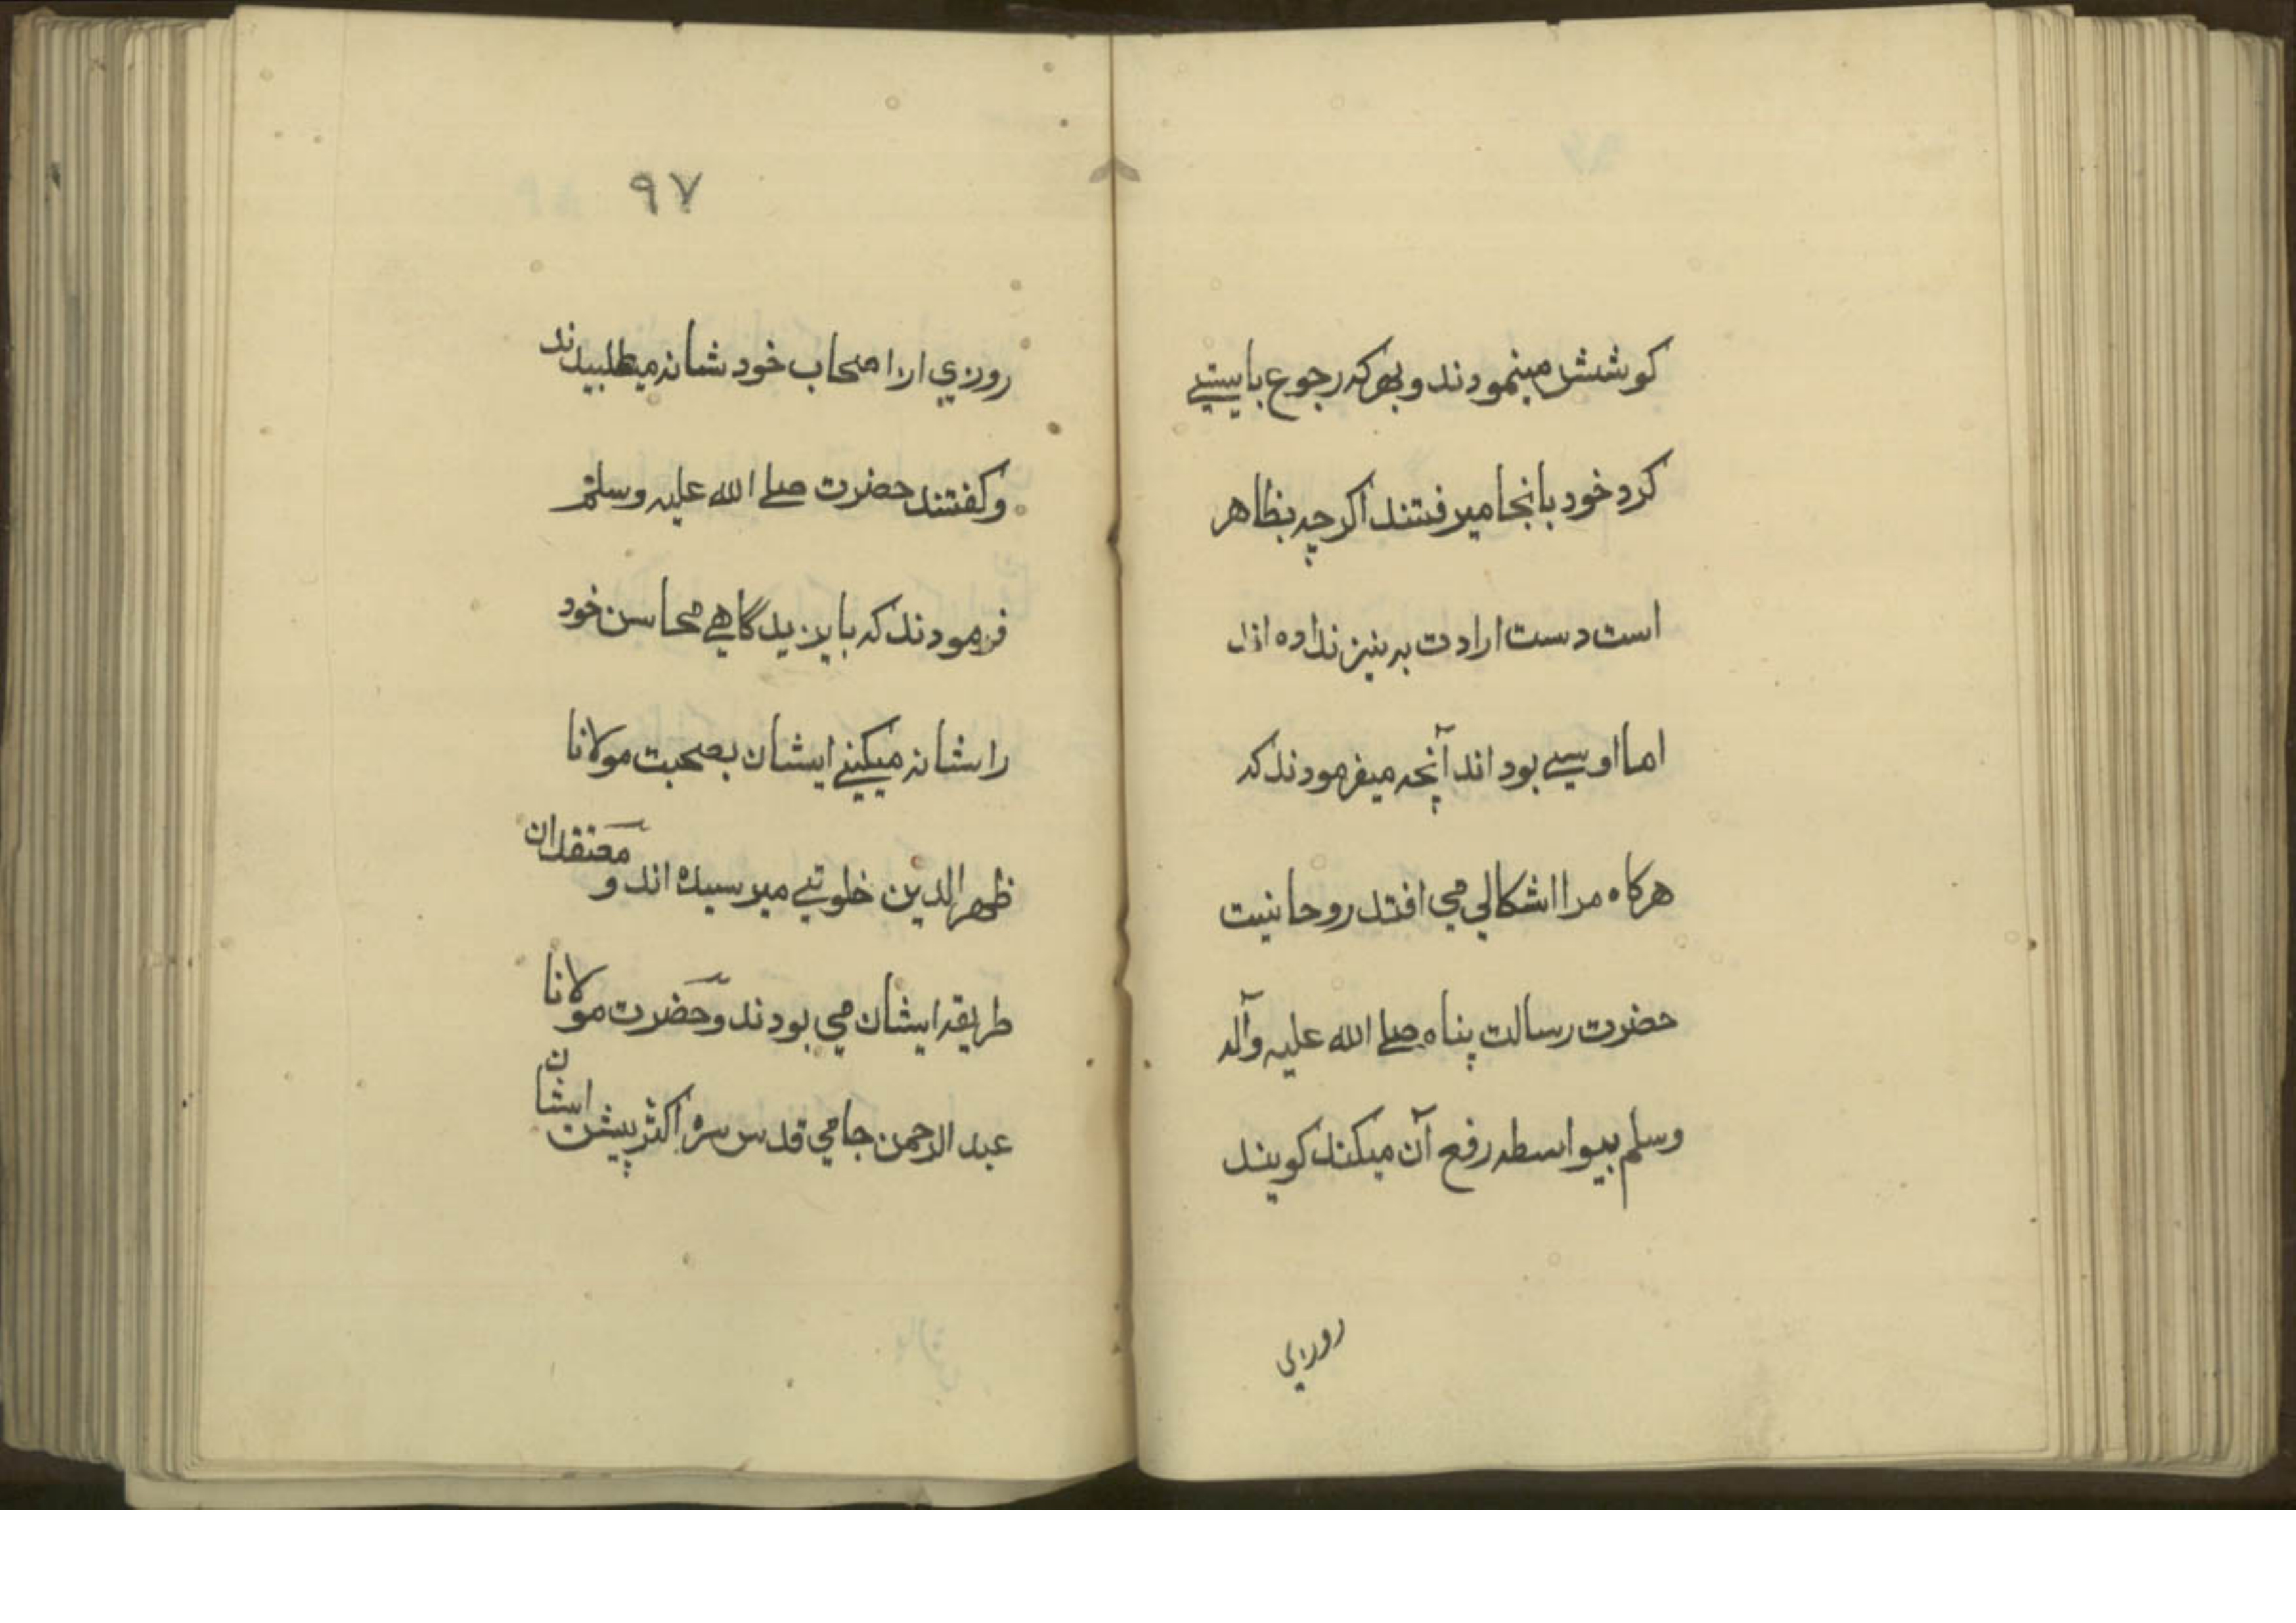 كوشش مينمودند و بهركه رجوع بايستي
كرد خود بانجا ميرفتند اكرچه بظاهر
است دست ارادت به نيز نداده اند
اما اويسي بود اند آنچه ميفرمودند كه
هركاه مرا اشكالي مي افتد روحانيت
حضرت رسالت پناه صلى الله عليه وآله
وسلم بيواسطه رفع آن ميكند كويند
روزي
٩٧
روزي ازا صحاب خود شانه ميطلبيدند
وكفتند حضرت صلى الله عليه وسلم
فرمودند كه بايزيد گاهي محاسن خود
را شانه ميكني ايشان بصحبت مولانا
ظهر الدين خلوتي ميرسيده اند و معتقدان
طريقه ايشان مي بودند و حضرت مولانا
عبد الرحمن جامي قدس سره اكثر پيش ايشان